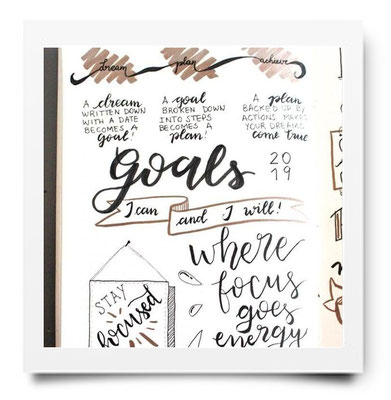 dream plan achieve
A dream
WRITTEN DOWN
WITH A DATE
BECOMES A
goal!
A goal
BROKEN DOWN
INTO STEPS
BECOMES A
plan!
A plan
BACKED UP BY
ACTIONS MAKES
YOUR DREAMS
come true
goals
20
19
I can and I will!
STAY
focused
where
focus
goes
energy